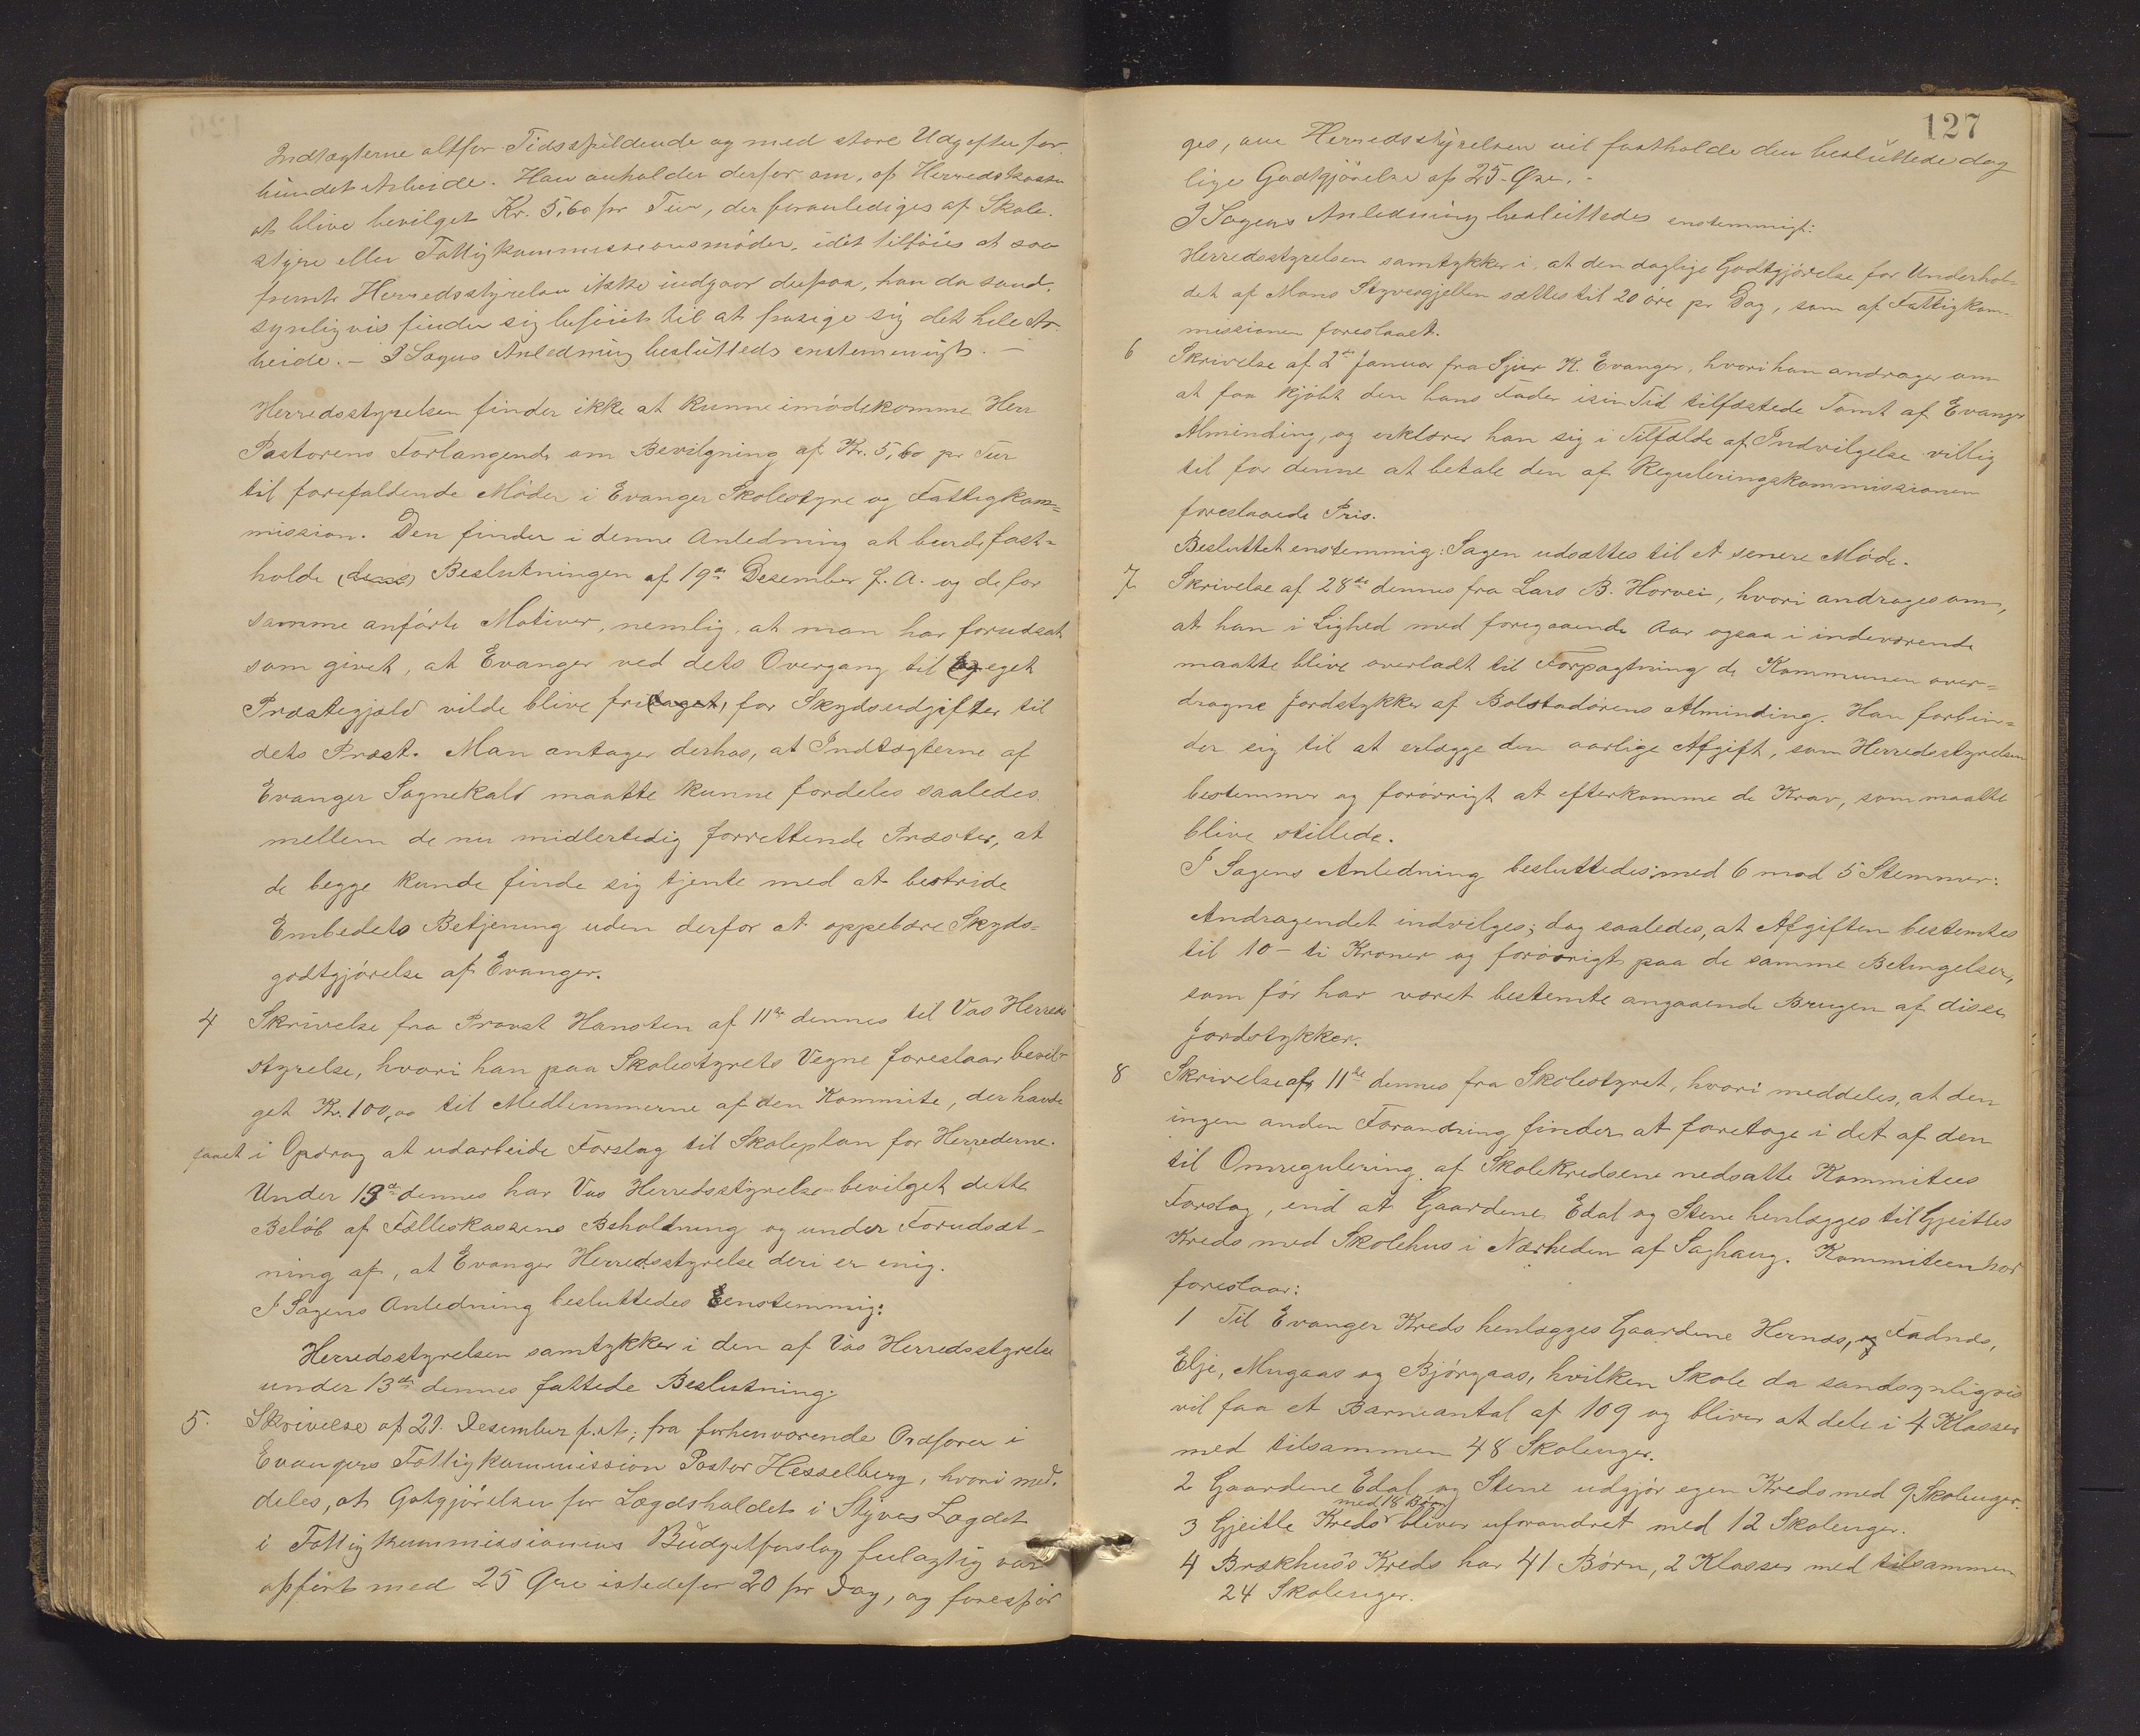 Indtægterne altfor Tidsspildende og med store Udgifter for-
bundet Arbeide. Han anholder derfor om, af Herredskassen
at blive bevilget Kr. 5,60 pr Tur, der foranlediges af Skole-
styre eller Fattigkommissionsmøder, idet tilføies at saa-
fremt Herredsstyrelsen ikke indgaar derpaa, han da sand-
synligvis finder sig beføiet til at frasige sig det hele Ar-
beide. – I Sagens Anledning besluttedes enstemmigt. –
Herredsstyrelsen finder ikke at kunne imødekomme Herr
Pastorens Forlangende om Bevilgning af Kr. 5,60 pr Tur
til forefaldende Møder i Evanger Skolestyre og Fattigkom=
mission. Den finder i denne Anledning at burde fast=
holde (dens) Beslutningen af 19de Desember f. A. og de for
samme anførte Motiver, nemlig, at man har forudsat
som givet, at Evanger ved dets Overgang til eget
Præstegjæld vilde blive fritaget, for Skydsudgifter til
dets Præst. Man antager derhos, at Indtægterne af
Evanger Sognekald maatte kunne fordeles saaledes
mellem de nu midlertidig forrettende Præster, at
de begge kunde finde sig tjente med at bestride
Embedets Betjening uden derfor at oppebære Skyds=
godtgjørelse af Evanger.
4 Skrivelse fra Provst Hansten af 11te dennes til Vos Herreds
styrelse, hvori han paa Skolestyrets Vegne foreslaar bevil-
get Kr. 100,00 til Medlemmerne af den Kommite, der havde
faaet i Opdrag at udarbeide Forslag til Skoleplan for Herrederne.
Under 13de dennes har Vos Herredsstyrelse bevilget dette
Beløb af Fælleskassens Beholdning og under Forudsæt-
ning af, at Evanger Herredsstyrelse deri er enig.
I Sagens Anledning besluttedes Eenstemmig:
Herredsstyrelsen samtykker i den af Vos Herredsstyrelse
under 13de dennes fattede Beslutning.
5. Skrivelse af 21. Desember f. A. fra forhenværende Ordfører i
Evangers Fattigkommission Pastor Hesselberg, hvori med-
deles, at Gotgjørelsen for Lægdsholdet i Styves Lægdet
i Fattigkommissionens Budgetforslag feilagtig var
opført med 25 Øre istedefor 20 pr Dag, og forespør
127
ges, om Herredsstyrelsen vil fastholde den besluttede dag
lige Godtgjørelse af 25 Øre. -
I Sagens Anledning besluttedes enstemmigt:
Herredsstyrelsen samtykker i, at den daglige Godtgjørelse for Underhol=
det af Mons Styvesgjellen sættes til 20 øre pr Dag, som af Fattigkom-
missionen foreslaaet.
6 Skrivelse af 2de Januar fra Sjur K. Evanger, hvori han andrager om
at faa kjøbt den hans Fader i sin Tid tilfæstede Tomt af Evanger
Alminding, og erklærer han sig i Tilfælde af Indvilgelse villig
til for denne at betale den af Reguleringskommissionen
foreslaaede Pris.
Besluttet enstemmig: Sagen udsættes til et senere Møde.
7 Skrivelse af 28de dennes fra Lars B. Horvei, hvori andrages om,
at han i Lighed med foregaaende Aar ogsaa i indeværende
maatte blive overladt til Forpagtning de Kommunen over=
dragne Jordstykker af Bolstadørens Alminding. Han forbin=
der sig til at erlægge den aarlige Afgift, som Herredsstyrelsen
bestemmer og forøvrigt at efterkomme de Krav, som maatte
blive stillede.
I Sagens Anledning besluttedes med 6 mod 5 Stemmer:
Andragendet indvilges; dog saaledes, at Afgiften bestemtes
til 10 – ti Kroner og forøvrigt paa de samme Betingelser,
som før har været bestemte angaaende Brugen af disse
Jordstykker.
8 Skrivelse af 11te dennes fra Skolestyret, hvori meddeles, at den
ingen anden Forandring finder at foretage i det af den
til Omregulering af Skolekredsene nedsatte Kommitees
Forslag, end at Gaardene Edal og Stene henlægges til Gjeitles
Kreds med Skolehus i Nærheden af Saghaug. Kommiteen har
foreslaar:
1 Til Evanger Kreds henlægges Gaardene Hernæs, og Fadnæs,
Elje, Mugaas og Bjørgaas, hvilken Skole da sandsynligvis
vil faa et Barneantal af 109 og bliver at dele i 4 Klasser
med tilsammen 48 Skoleuger.
2 Gaardene Edal og Stene udgjør egen Kreds med 9 Skoleuger.
med 18 Børn
3 Gjeitle Kreds bliver uforandret med 12 Skoleuger.
4 Brækhus's Kreds har 41 Børn, 2 Klasser med tilsammen
24 Skoleuger.